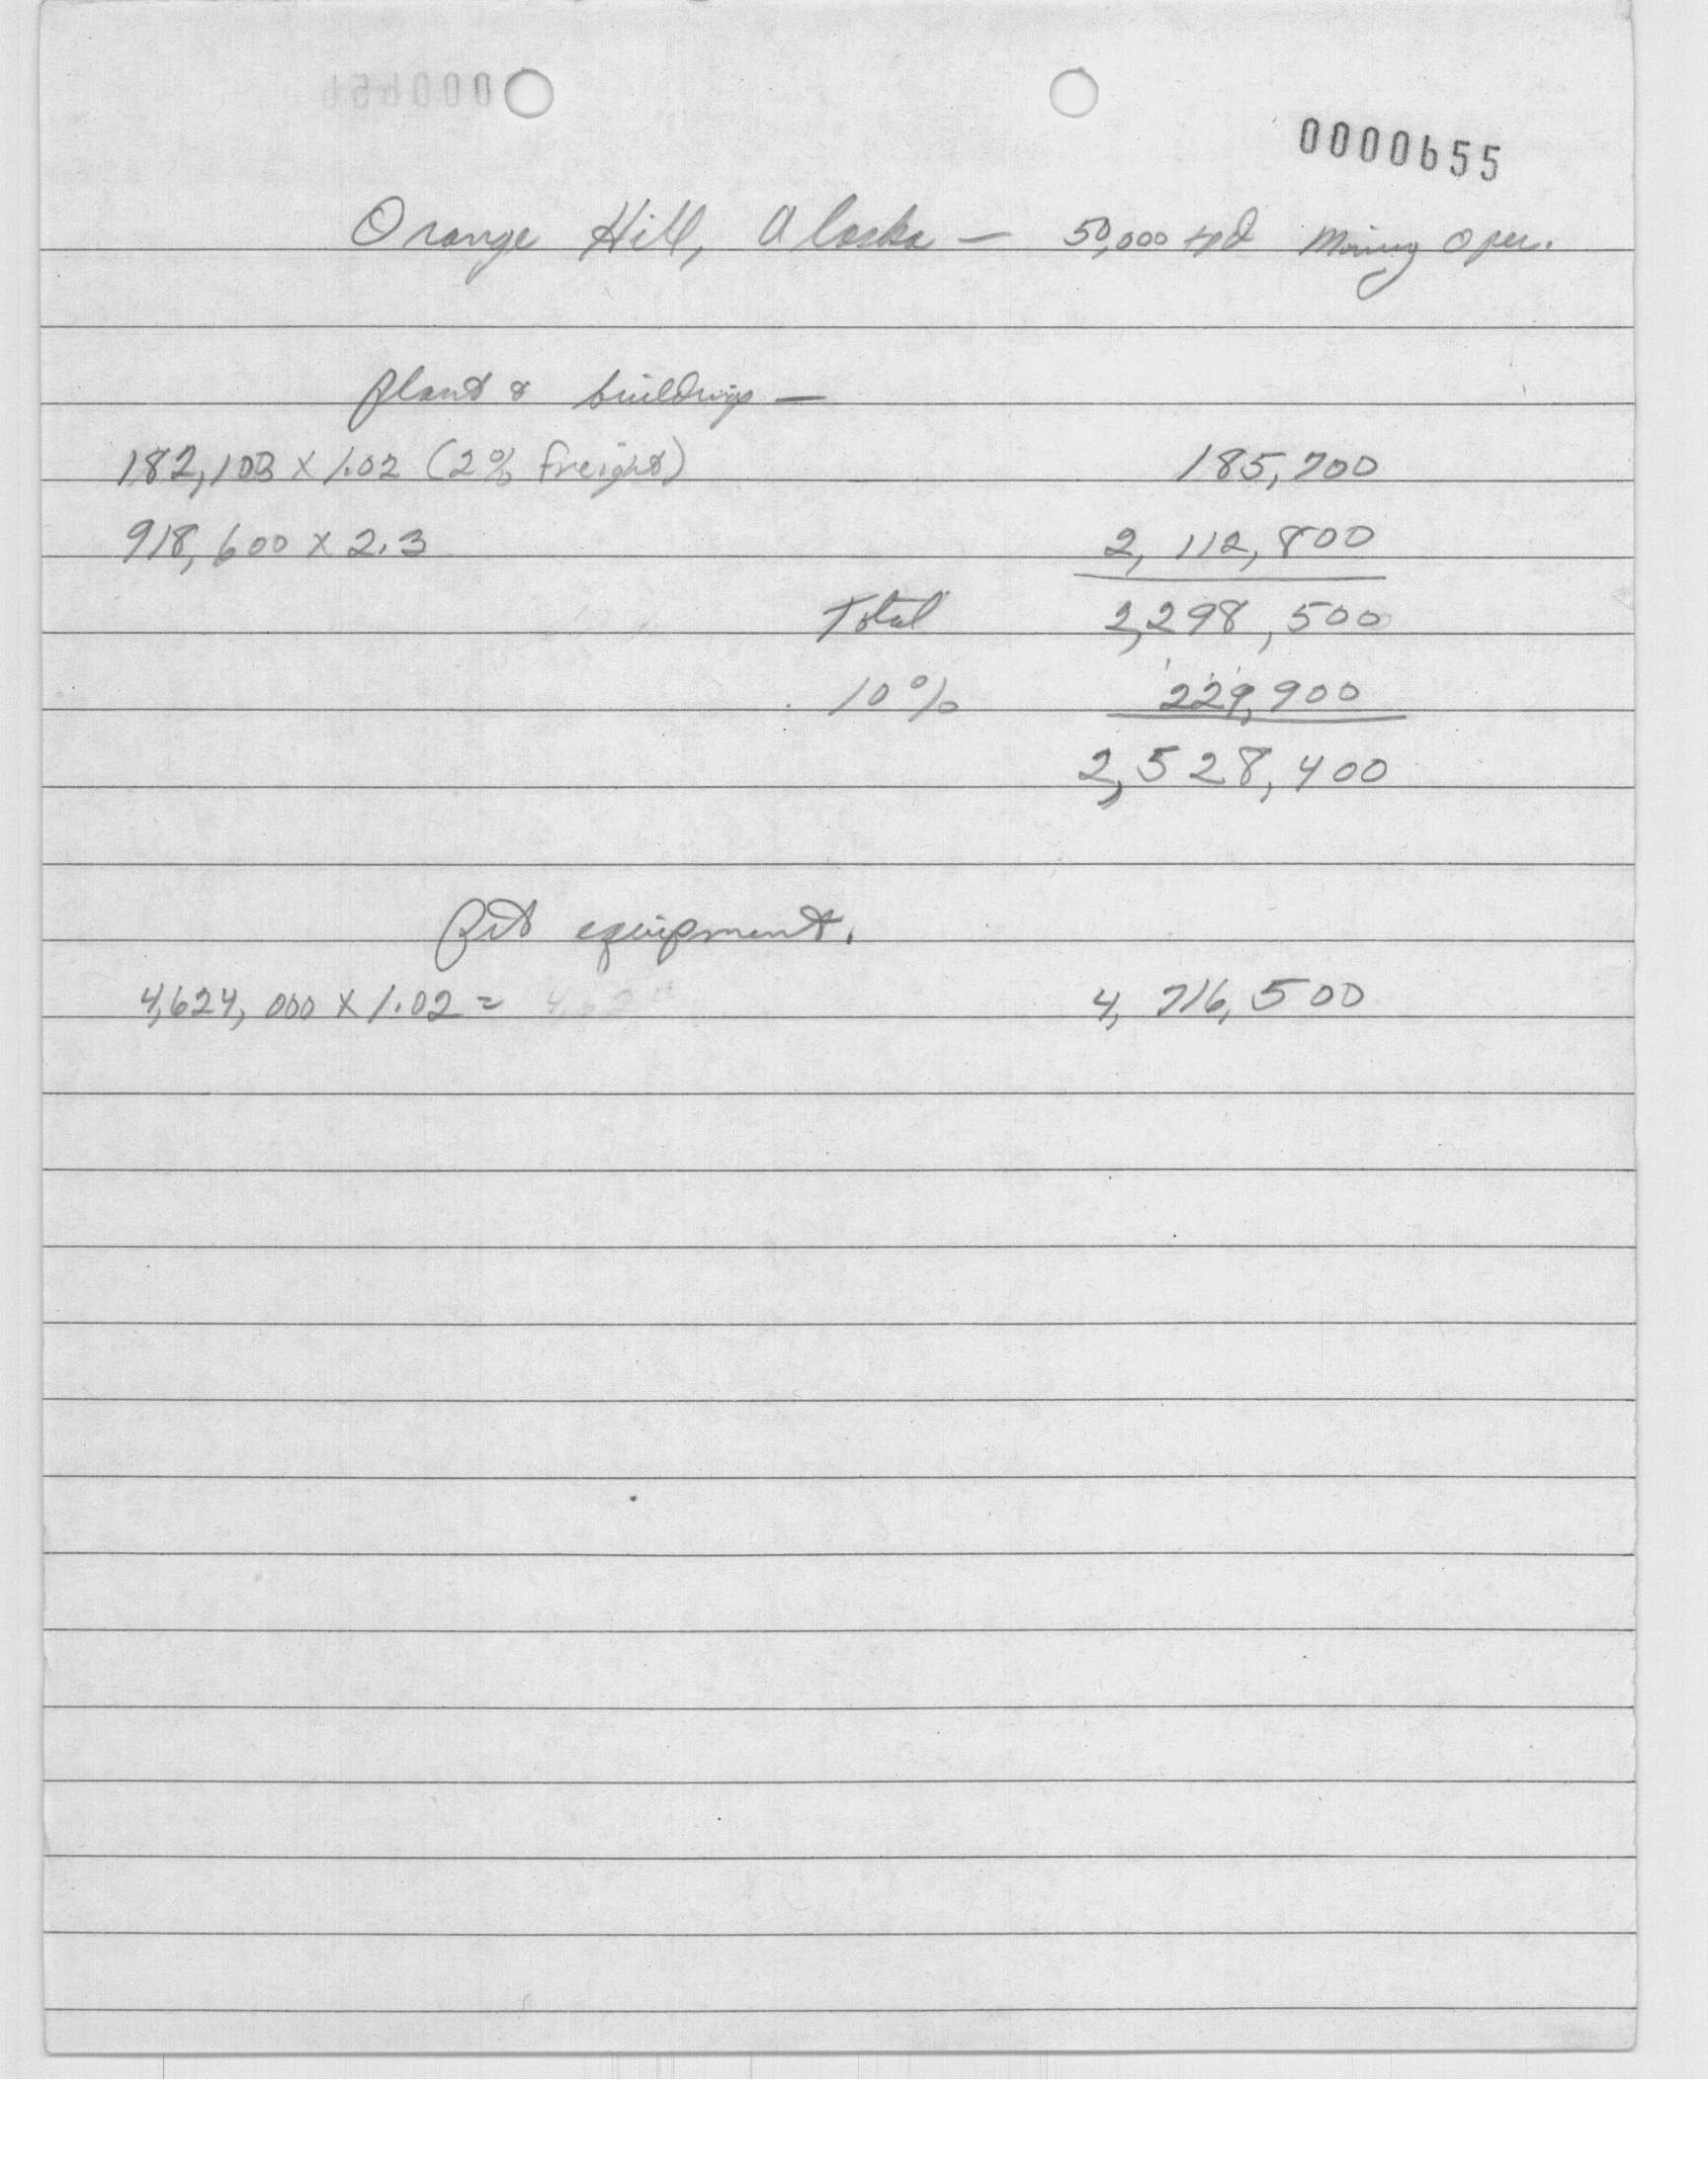 0000655
Orange Hill, Alaska — 50,000 tpd Mining Oper.
Plant & buildings —
182,103 x 1.02 (2% freight) 185,700
918,600 x 2.3 2,112,800
Total 2,298,500
10% 229,900
2,528,400
Pit equipment.
4,624,000 x 1.02 = 4,716,500